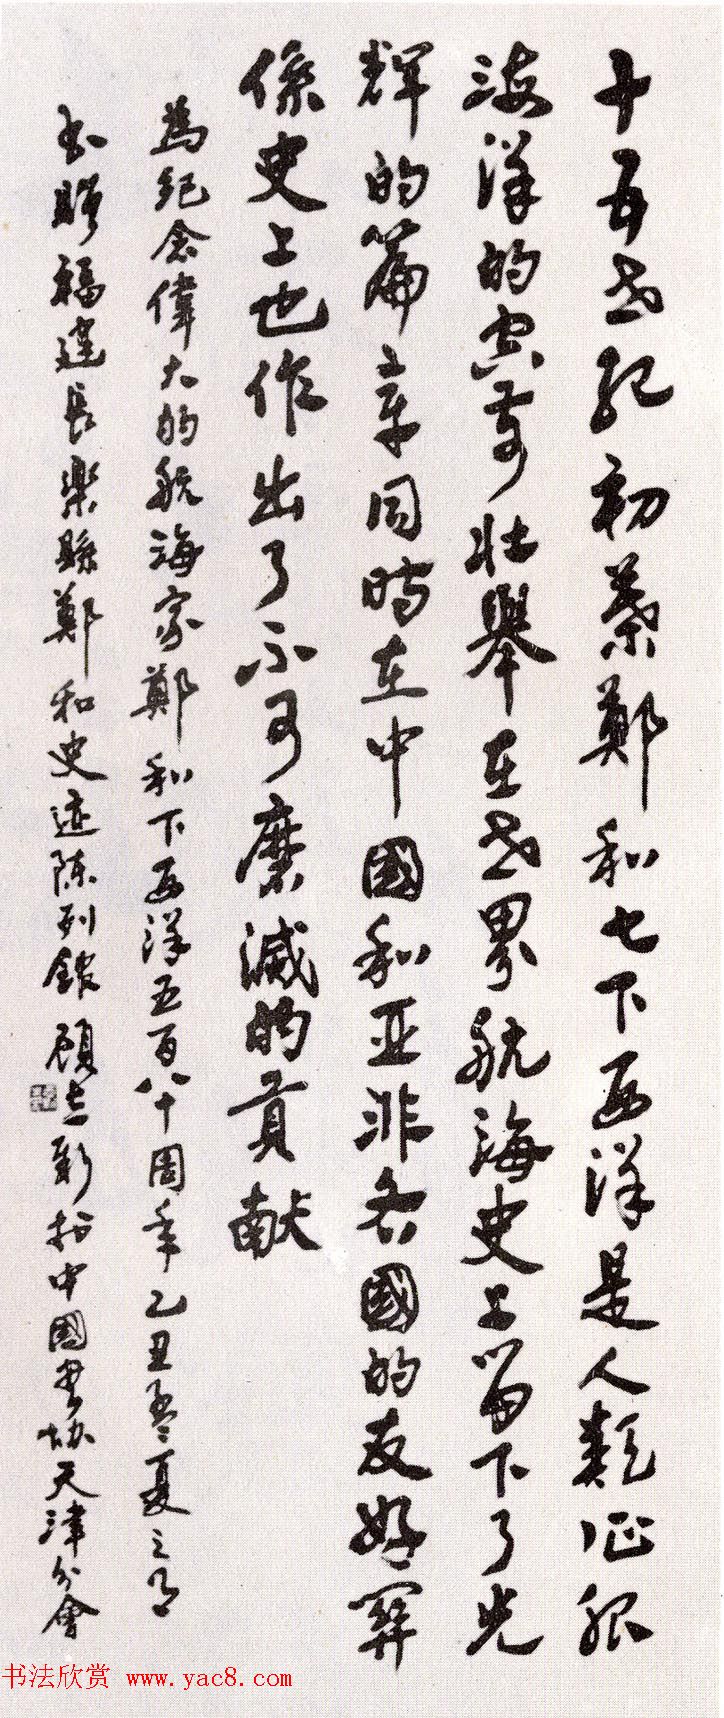 十五世纪初叶郑和七下西洋是人類征服
海洋的空前壮舉在世界航海史上留下了光
辉的篇章同時在中國和亚非各國的友好関
係史上也作出了不可磨滅的貢献
為紀念偉大的航海家鄭和下西洋五百八十周年乙丑孟夏之月
书贈福建長樂縣鄭和史迹陈列館顧志新於中國書协天津分會
书法欣赏 www.yac8.com